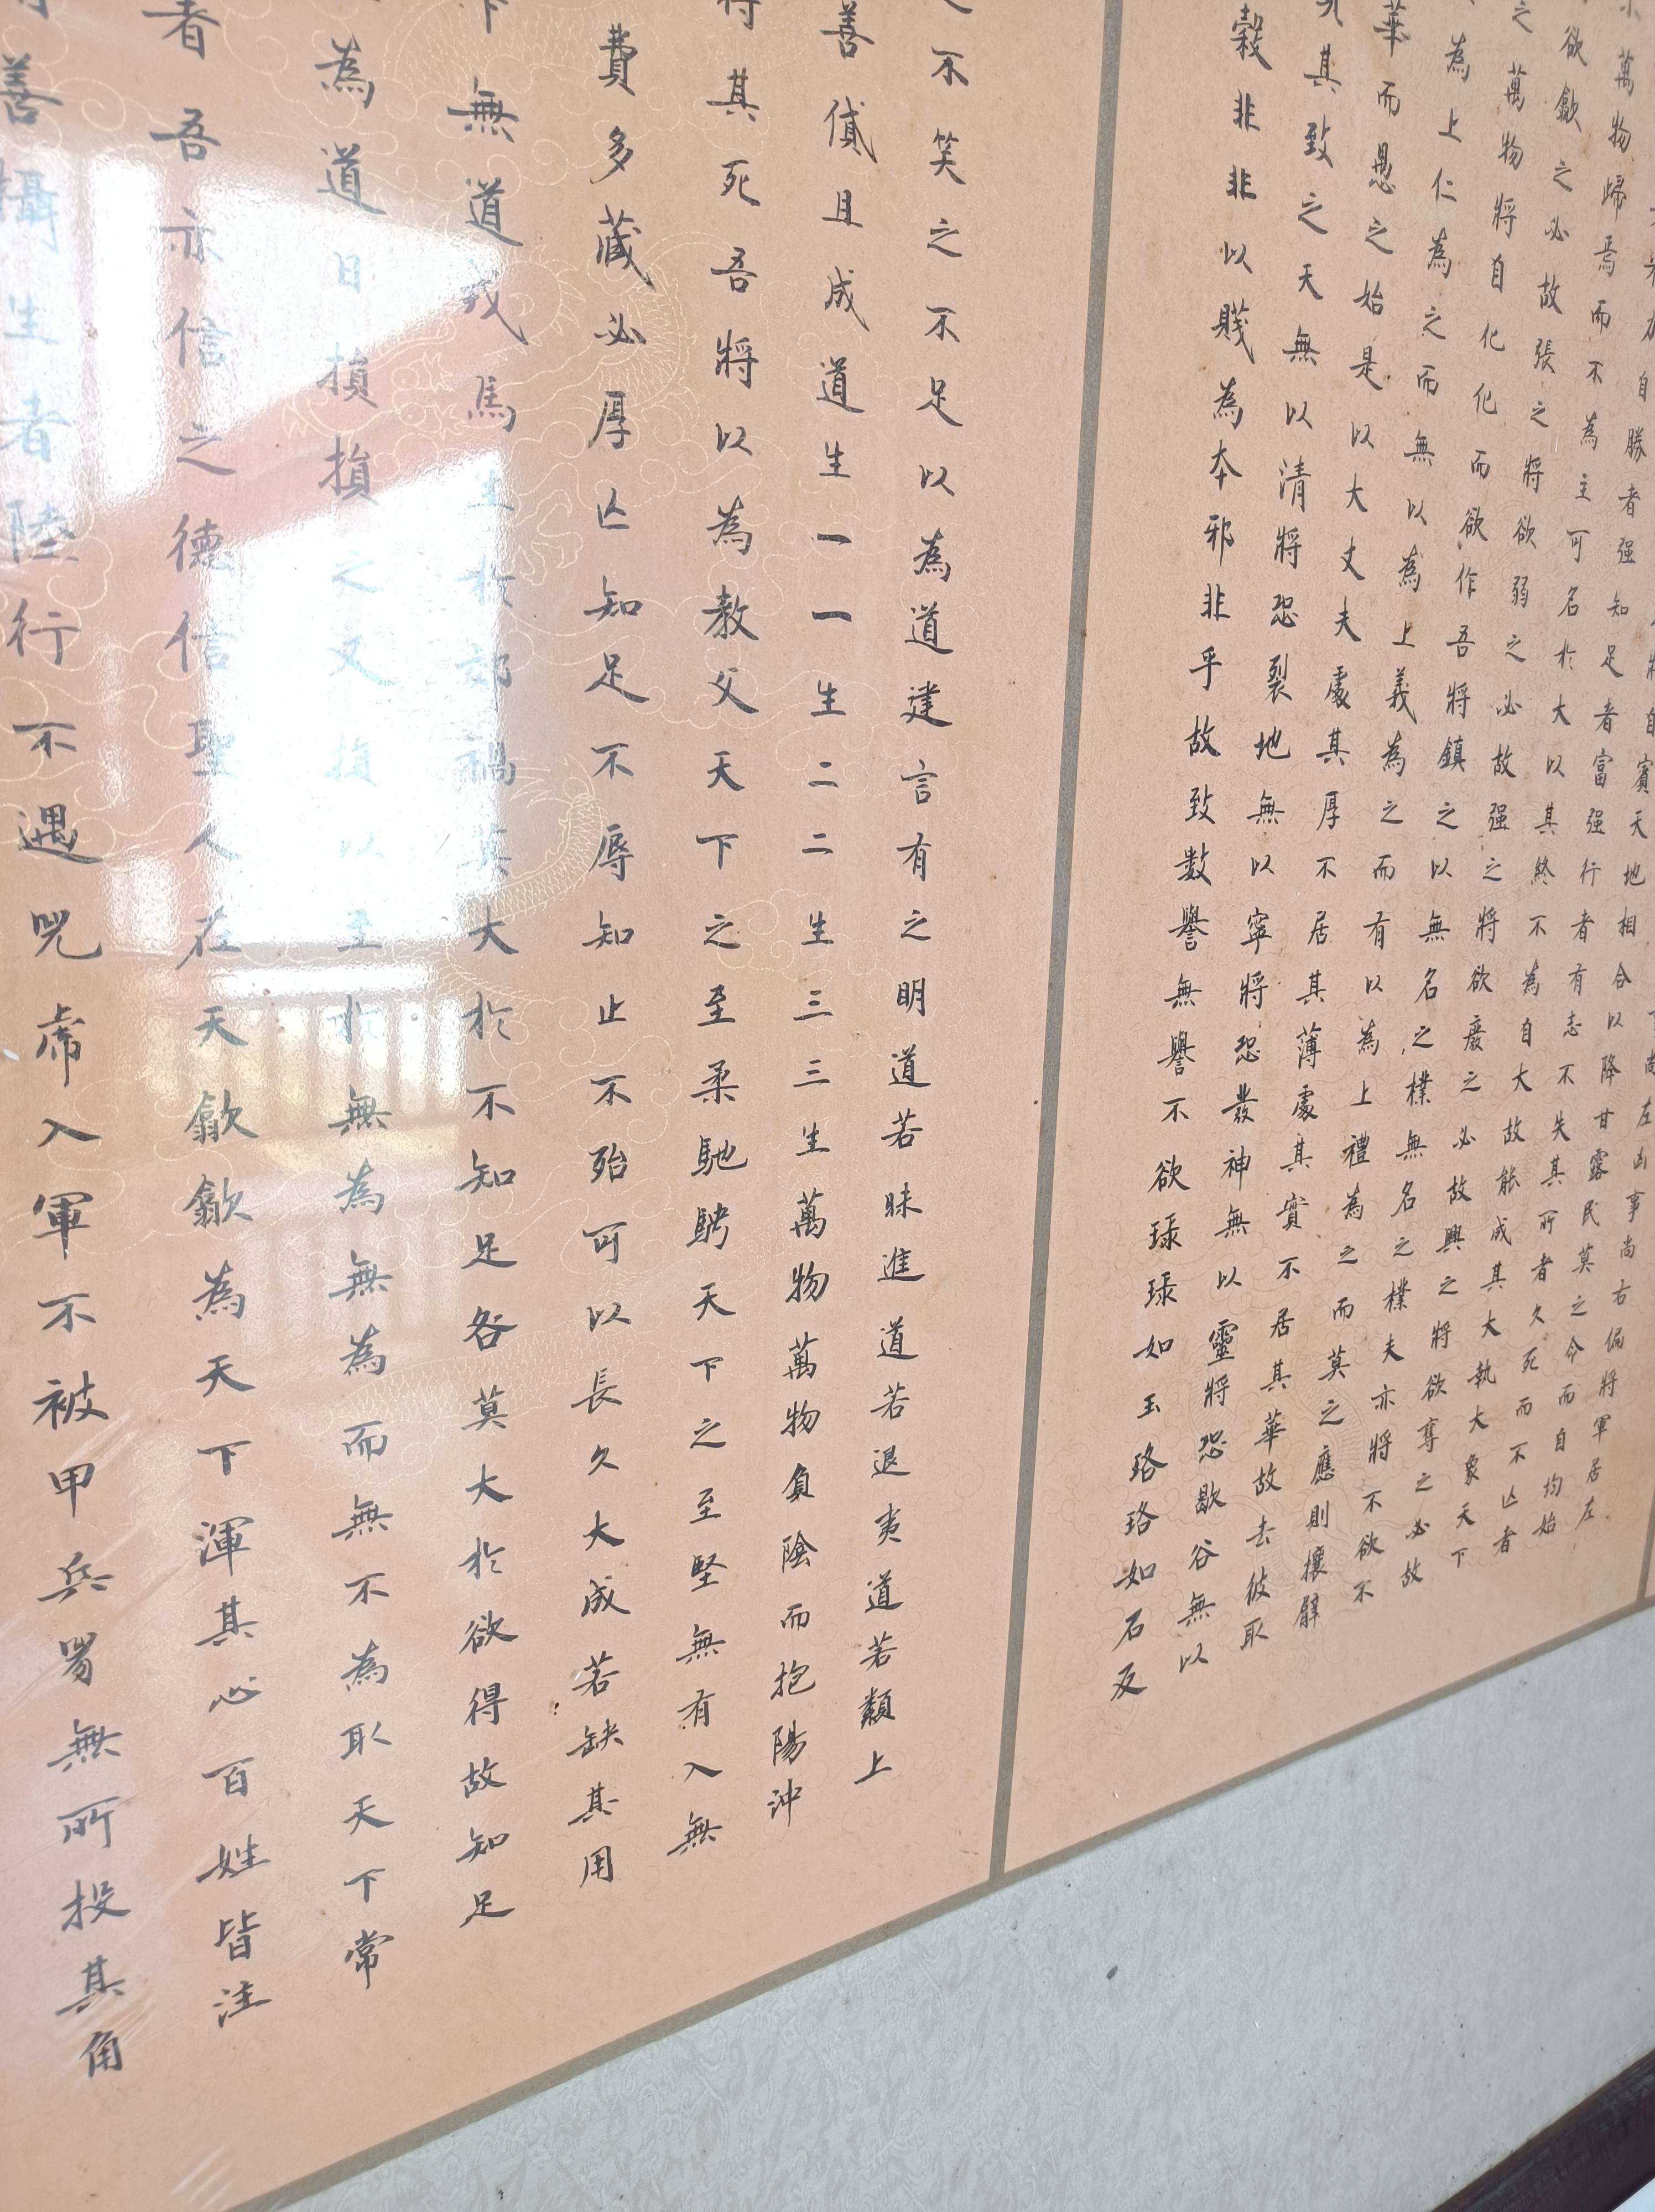 下尚左凶事尚右偏將軍居左
將自賓天地相合以降甘露民莫之令而自均始
自勝者强知足者富强行者有志不失其所者久死而不亾者
萬物歸焉而不為主可名於大以其終不為自大故能成其大執大象天下
欲歙之必故張之將欲弱之必故强之將欲廢之必故興之將欲奪之必故
之萬物將自化化而欲作吾將鎮之以無名之樸無名之樸夫亦將不欲不
為上仁為之而無以為上義為之而有以為上禮為之而莫之應則攘臂
華而愚之始是以大丈夫處其厚不居其薄處其實不居其華故去彼取
其致之天無以清將恐裂地無以寧將恐發神無以靈將恐歇谷無以
穀非非以賤為本邪非乎故致數譽無譽不欲琭琭如玉珞珞如石反
不笑之不足以為道建言有之明道若昧進道若退夷道若纇上
善貸且成道生一一生二二生三三生萬物萬物負陰而抱陽沖
其死吾將以為教父天下之至柔馳騁天下之至堅無有入無
費多藏必厚亾知足不辱知止不殆可以長久大成若缺其用
無道戎馬生於郊禍莫大於不知足咎莫大於欲得故知足
為道日損損之又損以至於無為無為而無不為取天下常
者吾亦信之德信聖人在天歙歙為天下渾其心百姓皆注
善攝生者陸行不遇兕虎入軍不被甲兵兕無所投其角